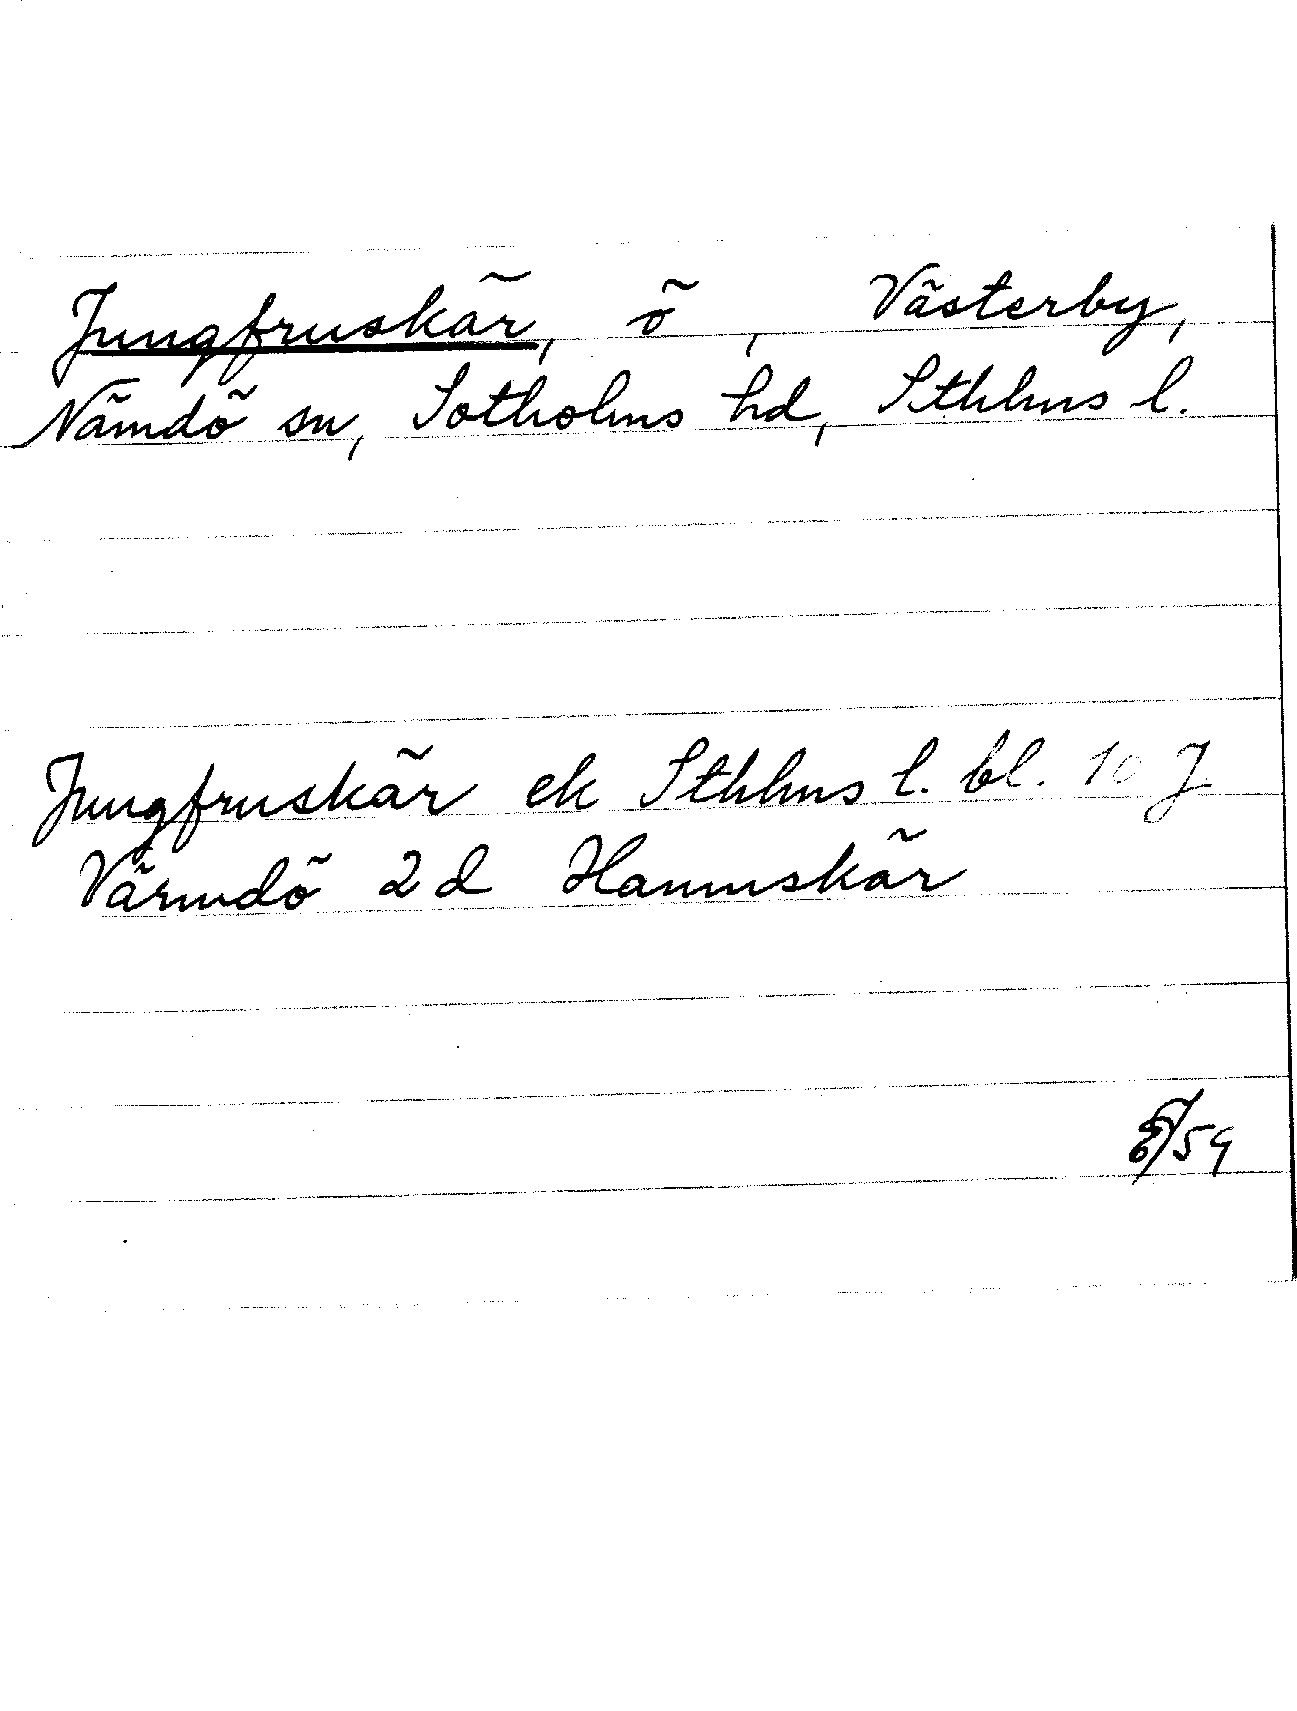 Jungfruskär, ö, Västerby,
Nämdö sn, Sotholms hd, Sthlms l.
Jungfruskär ek Sthlms l. bl. 10 J
Värmdö 2d Hamnskär
/59